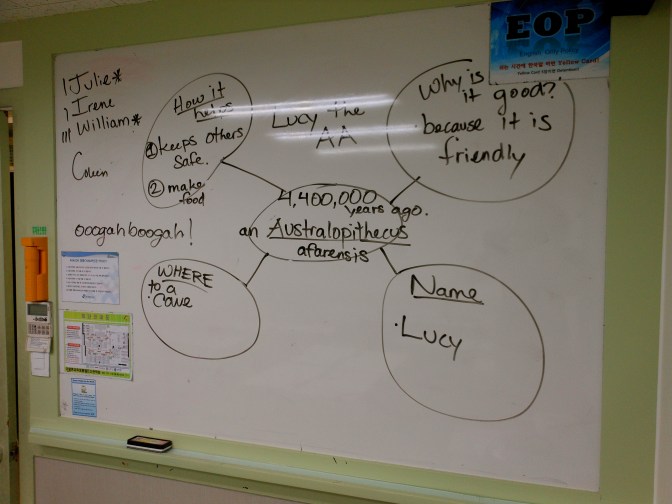 EOP
English Only Policy
Yellow Card!
1 Julie*
1 Irene
||| William*
Colin
oocgah boogah!
How it helps
① keeps others
safe.
② make
food
Lucy the
AA
Why is
it good?
because it is
friendly
4,400,000
years ago.
an Australopithecus
afarensis
WHERE
to a
Cave
Name
·Lucy